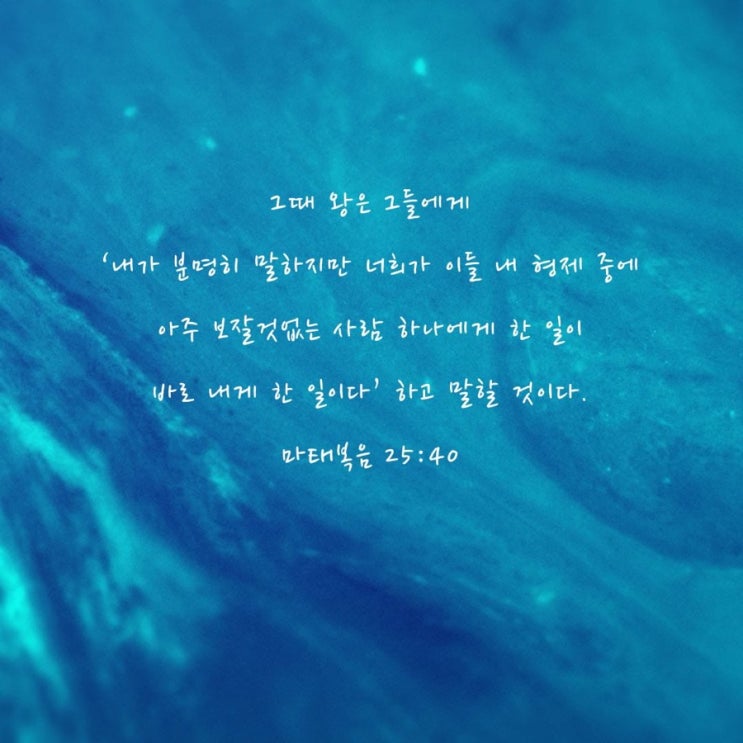 그때 왕은 그들에게
‘내가 분명히 말하지만 너희가 이들 내 형제 중에
아주 보잘것없는 사람 하나에게 한 일이
바로 내게 한 일이다’ 하고 말할 것이다.
마태복음 25:40